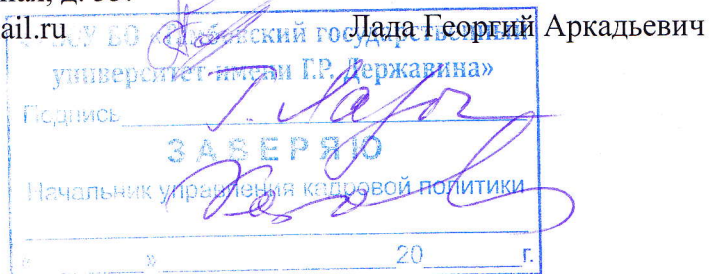 ail.ru Лада Георгий Аркадьевич
ВО «Тамбовский государственный
университет имени Г.Р. Державина»
Подпись Г. Лада
ЗАВЕРЯЮ
Начальник управления кадровой политики
« » 20 г.